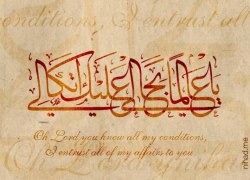 conditions, I entrust all
يا عالما بحالي عليك اتكالي
Oh Lord you know all my conditions,
I entrust all of my affairs to you
nihad.me